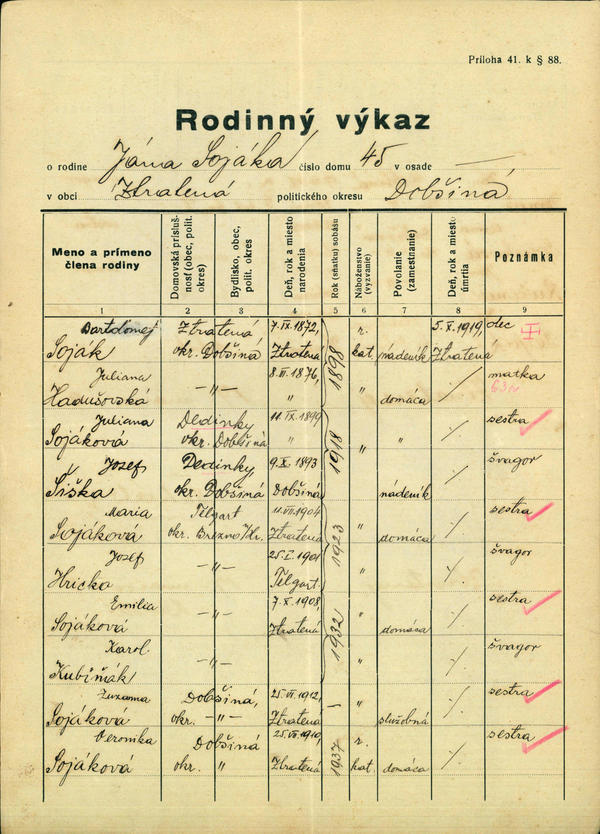 Príloha 41. k § 88.
Rodinný výkaz
o rodine Jána Sojáka číslo domu 45 v osade —
v obci Ztratená politického okresu Dobšiná
Meno a prímeno člena rodiny
Domovská príslušnosť (obec, polit. okres)
Bydlisko, obec, polit. okres
Deň, rok a miesto narodenia
Rok (sňatku) sobášu
Náboženstvo (vyzvanie)
Povolanie (zamestnanie)
Deň, rok a miesto úmrtia
Poznámka
1 2 3 4 5 6 7 8 9
Bartolomej Ztratená 7. IX. 1872, r. 5. X. 1919, otec I
Soják okr. Dobšiná Ztratená 1898 kat. nádeník Ztratená
Juliana —„— 8. II. 1876, matka
Hadušovská „ „ domáca ·/· 63r
Juliana Dedinky 11. IX. 1899 sestra
Sojáková okr. Dobšiná „ 1918 „ „ ·/·
Jozef Dedinky 9. X. 1893 švagor
Šiška okr. Dobšiná Dobšiná „ nádeník ·/·
Maria Telgart 11. VII. 1904 sestra
Sojáková okr. Brezno n/Hr. Ztratená 1923 „ domáca ·/·
Jozef —„— 25. I. 1901 švagor
Hricko Telgart. „ ·/·
Emilia —„— 7. X. 1908, sestra
Sojáková Ztratená 1932 „ domáca ·/·
Karol —„— švagor
Kubiňák „ ·/·
Zuzanna Dobšiná, 25. VI. 1912, sestra
Sojáková okr. —„— Ztratená / „ služobná ·/·
Veronika Dobšiná 25. VII. 1910, r. sestra
Sojáková okr. „ Ztratená 1937 kat. domáca ·/·